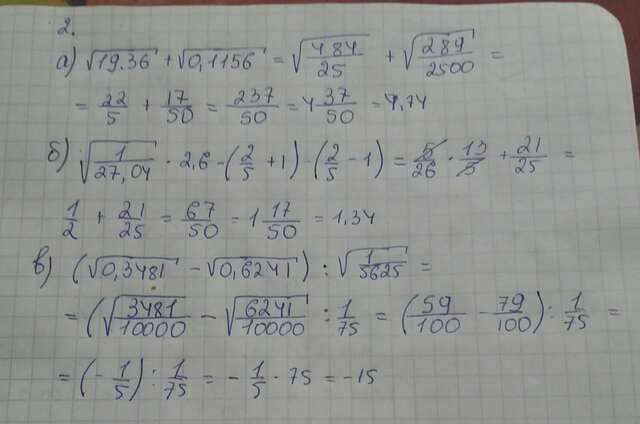 2.
а) √19.36 + √0,1156 = √(484/25) + √(289/2500) =
= 22/5 + 17/50 = 237/50 = 4 37/50 = 4,74
б) √(1/27,04) · 2,6 - (2/5 + 1) · (2/5 - 1) = 5/26 · 13/5 + 21/25 =
1/2 + 21/25 = 67/50 = 1 17/50 = 1,34
в) (√0,3481 - √0,6241) : √(1/5625) =
= (√(3481/10000) - √(6241/10000) : 1/75 = (59/100 - 79/100) : 1/75 =
= (- 1/5) : 1/75 = - 1/5 · 75 = -15